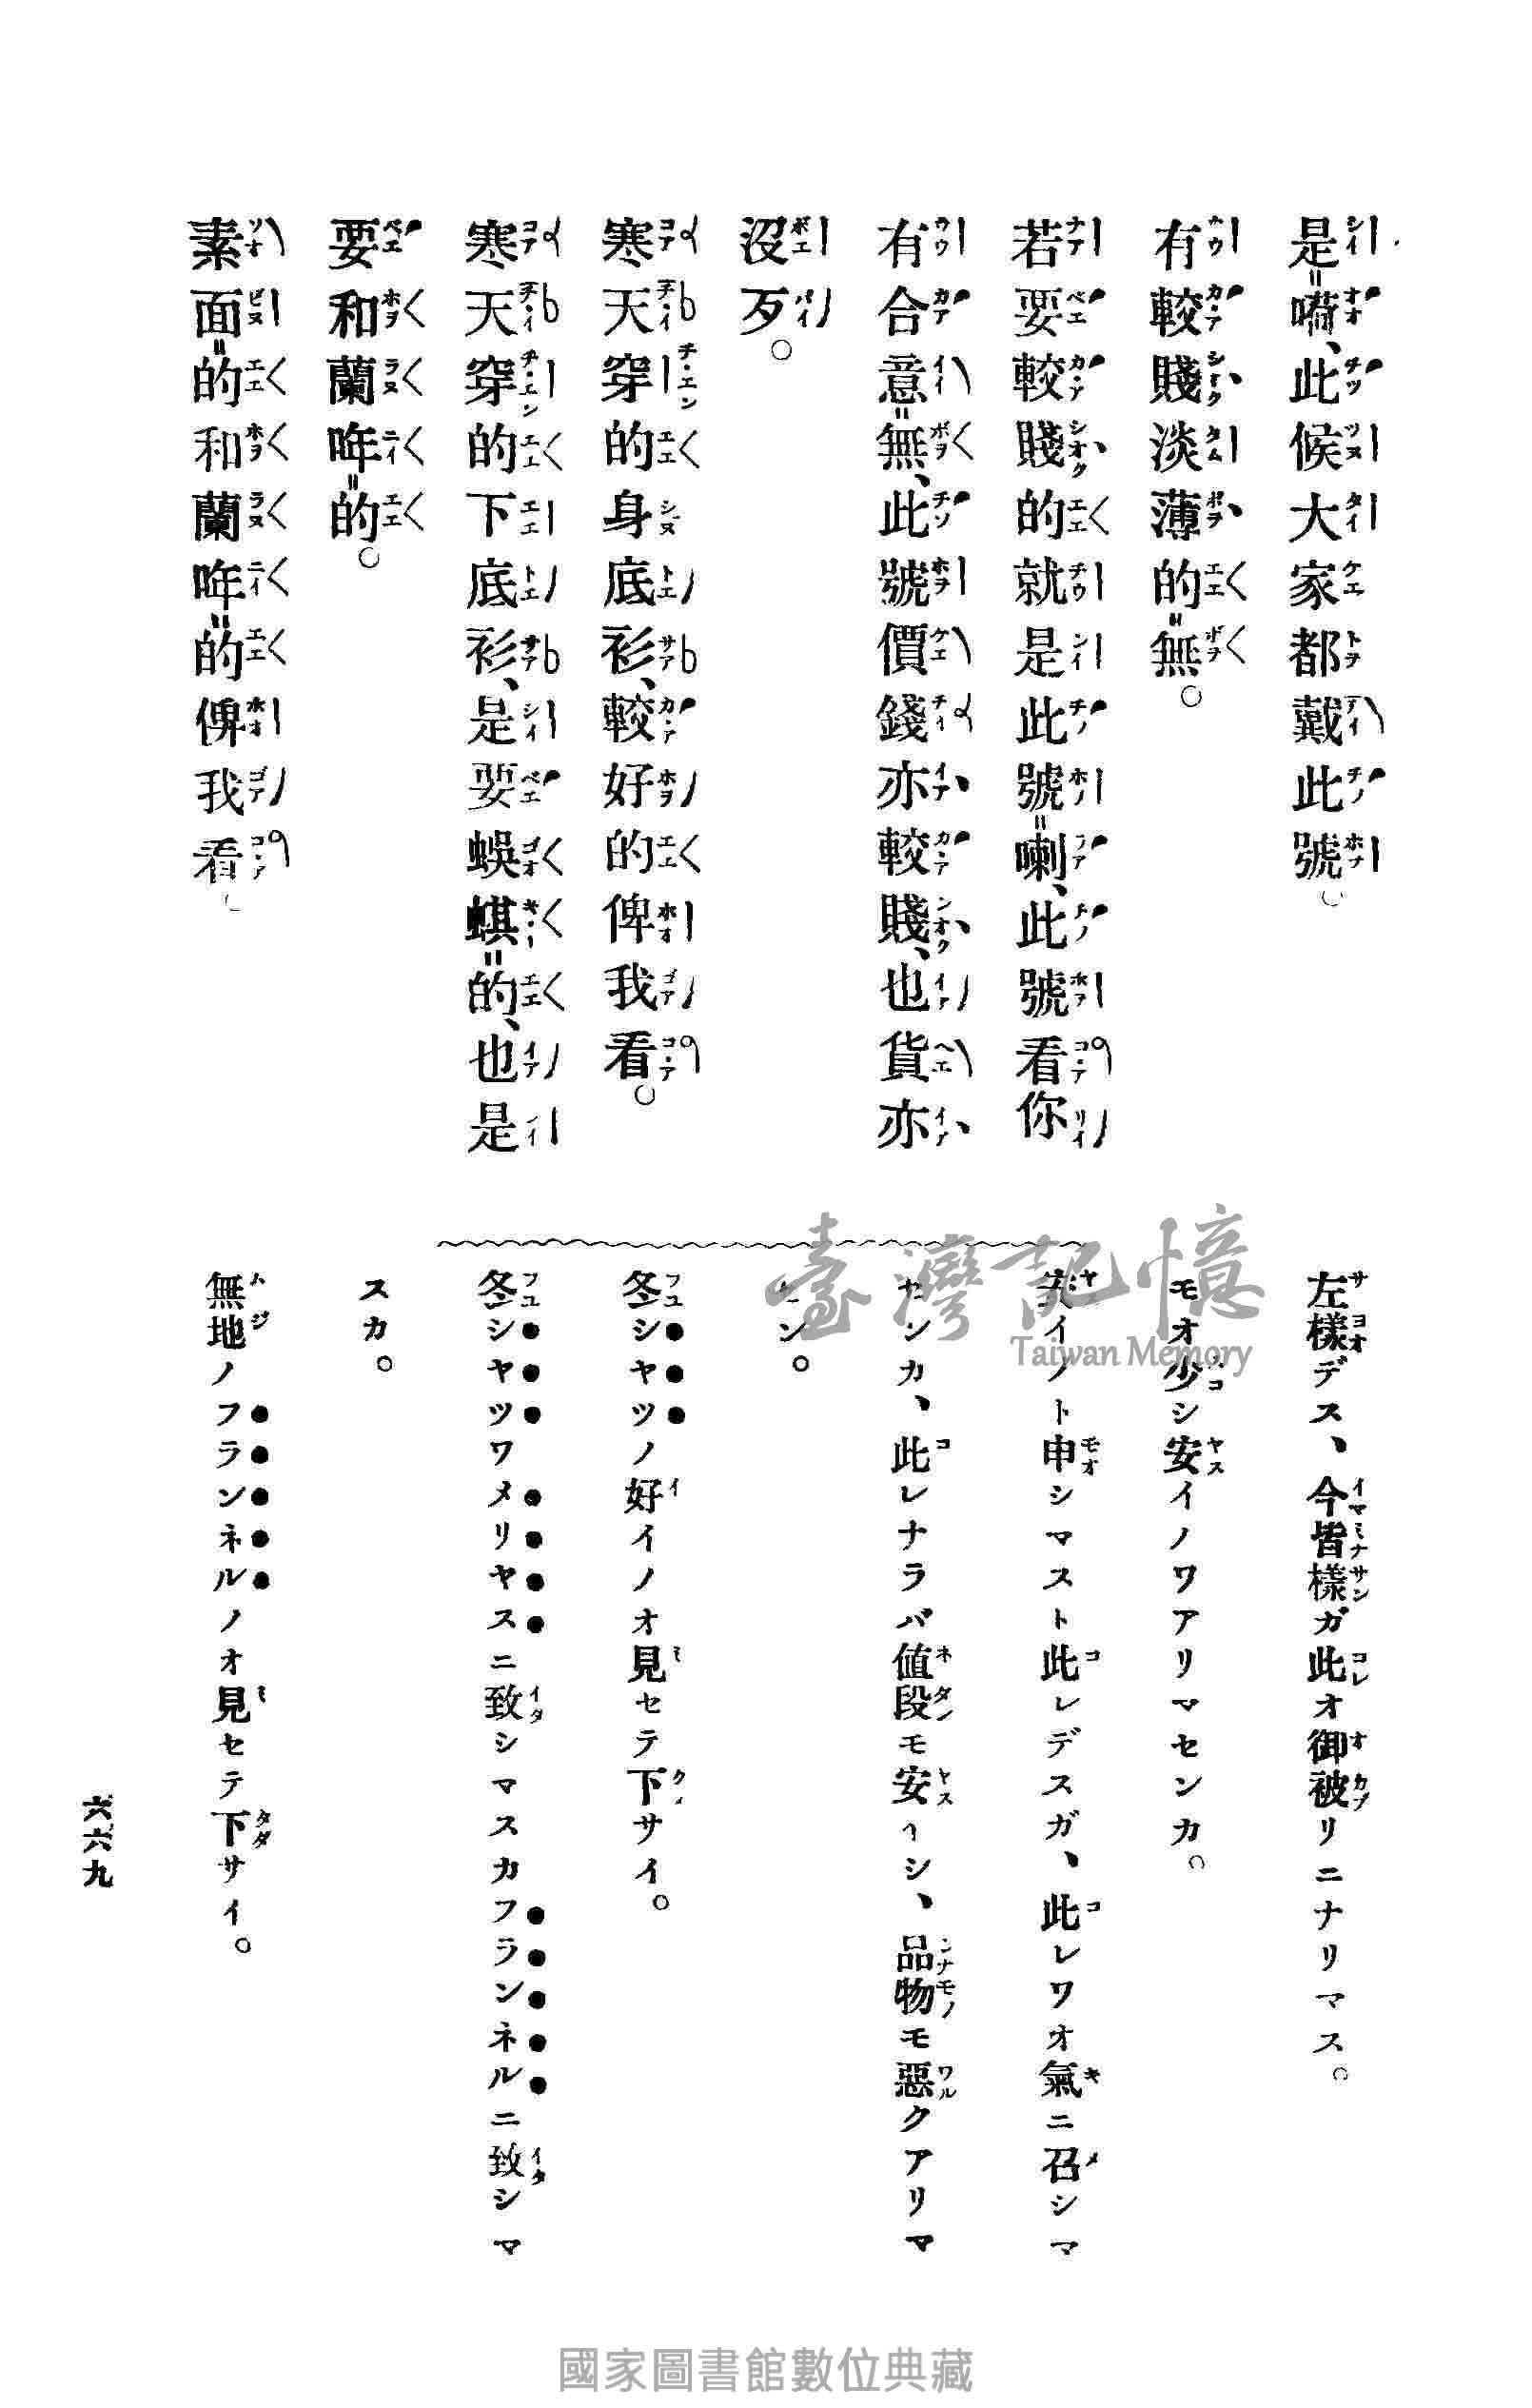 是=嗬、此候大家都戴此號。
有較賤淡薄的=無。
若要較賤的就是此號=喇、此號看你
有合意=無、此號價錢亦較賤、也貨亦
沒歹。
寒天穿的身底衫、較好的俾我看。
寒天穿的下底衫、是要蜈蜞=的、也是
要和蘭哖=的。
素面=的和蘭哖=的俾我看。
左樣デス、今皆樣ガ此オ御被リニナリマス。
モオ少シ安イノワアリマセンカ。
安イノト申シマスト此レデスガ、此レワオ氣ニ召シマ
センカ、此レナラバ値段モ安ヽシ、品物モ惡クアリマ
セン。
冬シヤツノ好イノオ見セテ下サイ。
冬シヤツワメリヤスニ致シマスカフランネルニ致シマ
スカ。
無地ノフランネルノオ見セテ下サイ。
六六九
臺灣記憶
Taiwan Memory
國家圖書館數位典藏